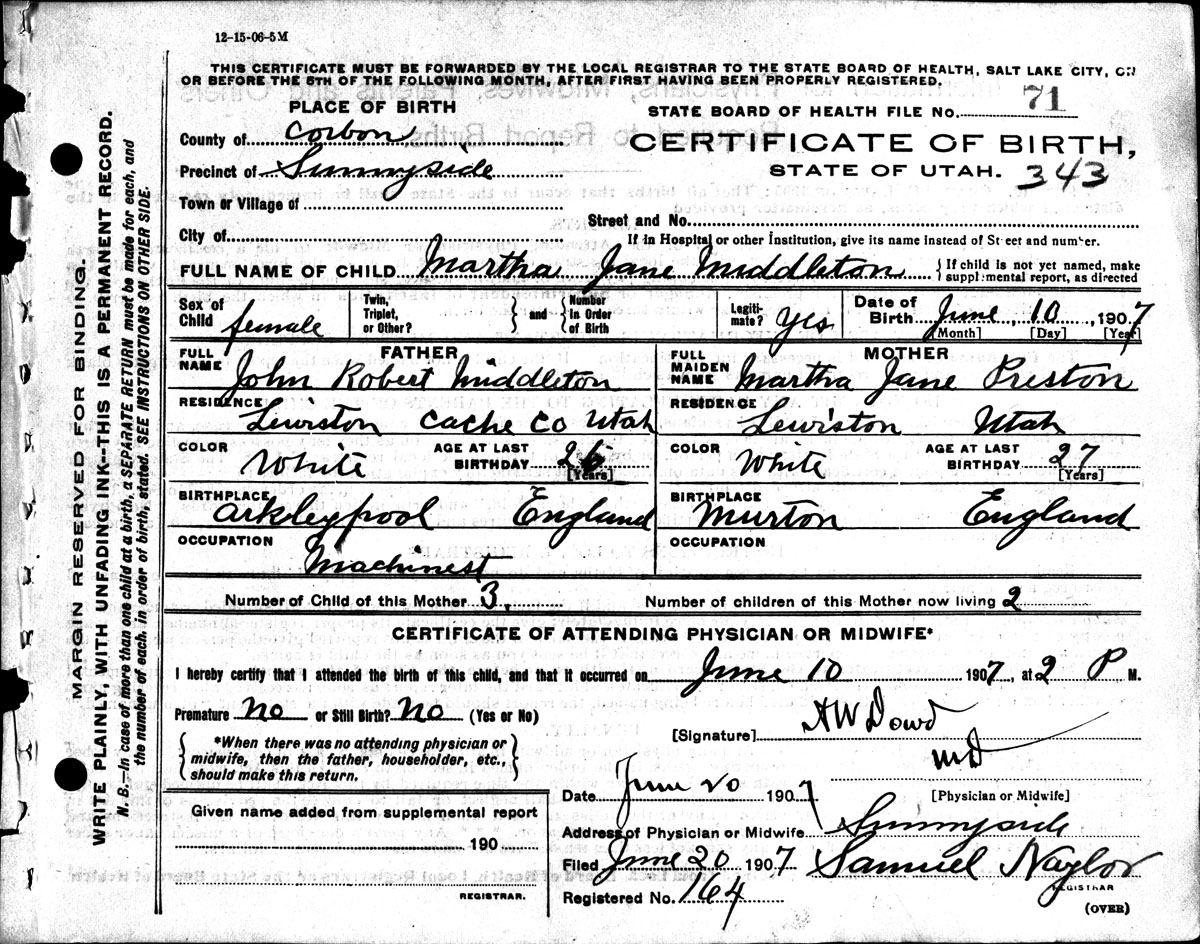 12-15-06-5M
THIS CERTIFICATE MUST BE FORWARDED BY THE LOCAL REGISTRAR TO THE STATE BOARD OF HEALTH, SALT LAKE CITY, ON
OR BEFORE THE 5TH OF THE FOLLOWING MONTH, AFTER FIRST HAVING BEEN PROPERLY REGISTERED.
PLACE OF BIRTH
STATE BOARD OF HEALTH FILE No. 71
County of Corbon
CERTIFICATE OF BIRTH,
Precinct of Sunnyside
STATE OF UTAH. 343
Town or Village of
Street and No.
City of
If in Hospital or other Institution, give its name instead of Street and number.
FULL NAME OF CHILD Martha Jane Middleton { If child is not yet named, make supplemental report, as directed
Sex of Child female Twin, Triplet, or Other? } and { Number in Order of Birth Legitimate? Yes Date of Birth June 10, 1907
[Month] [Day] [Year]
FATHER MOTHER
FULL NAME John Robert Middleton FULL MAIDEN NAME Martha Jane Preston
RESIDENCE Lewiston Cache Co Utah RESIDENCE Lewiston Utah
COLOR White AGE AT LAST BIRTHDAY 26 [Years] COLOR White AGE AT LAST BIRTHDAY 27 [Years]
BIRTHPLACE Arkleypool England BIRTHPLACE Murton England
OCCUPATION Machinest OCCUPATION
Number of Child of this Mother 3. Number of children of this Mother now living 2
CERTIFICATE OF ATTENDING PHYSICIAN OR MIDWIFE*
I hereby certify that I attended the birth of this child, and that it occurred on June 10 1907, at 2 P M.
Premature No or Still Birth? No (Yes or No)
[Signature] A W Dowd
MD
{ *When there was no attending physician or
midwife, then the father, householder, etc.,
should make this return. }
Date June 20 1907 [Physician or Midwife]
Given name added from supplemental report
Address of Physician or Midwife Sunnyside
190
Filed June 20 1907 Samuel Naylor
REGISTRAR. REGISTRAR
Registered No. 164
(OVER)
MARGIN RESERVED FOR BINDING.
WRITE PLAINLY, WITH UNFADING INK--THIS IS A PERMANENT RECORD.
N. B.--In case of more than one child at a birth, a SEPARATE RETURN must be made for each, and
the number of each, in order of birth, stated. SEE INSTRUCTIONS ON OTHER SIDE.